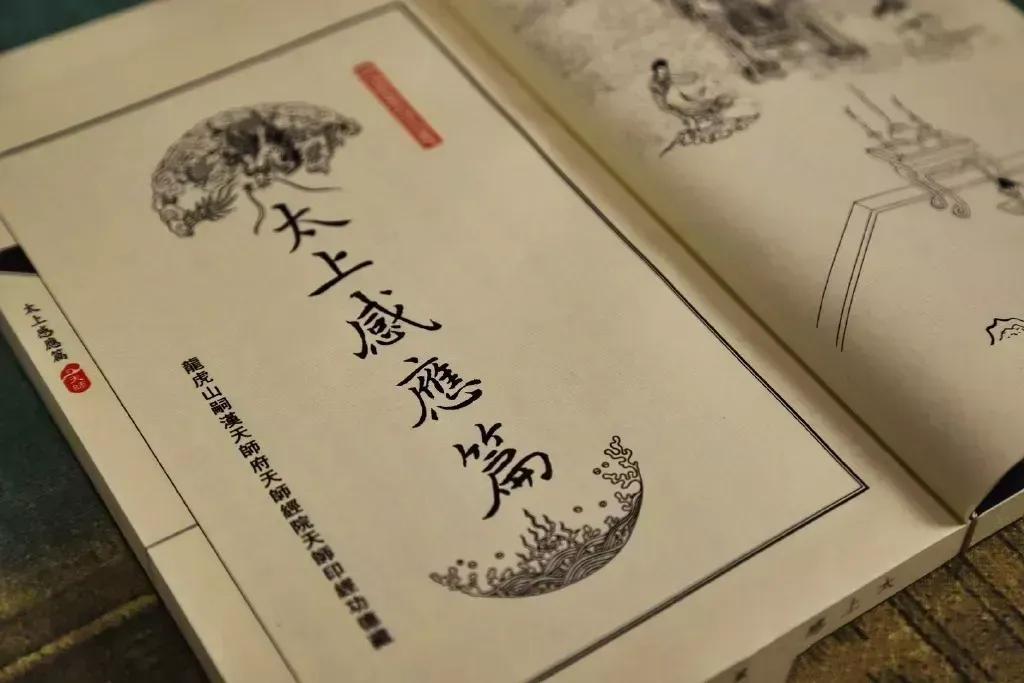 太上感應篇
龍虎山嗣漢天師府天師經院天師印經功德藏
太上感應篇
太上